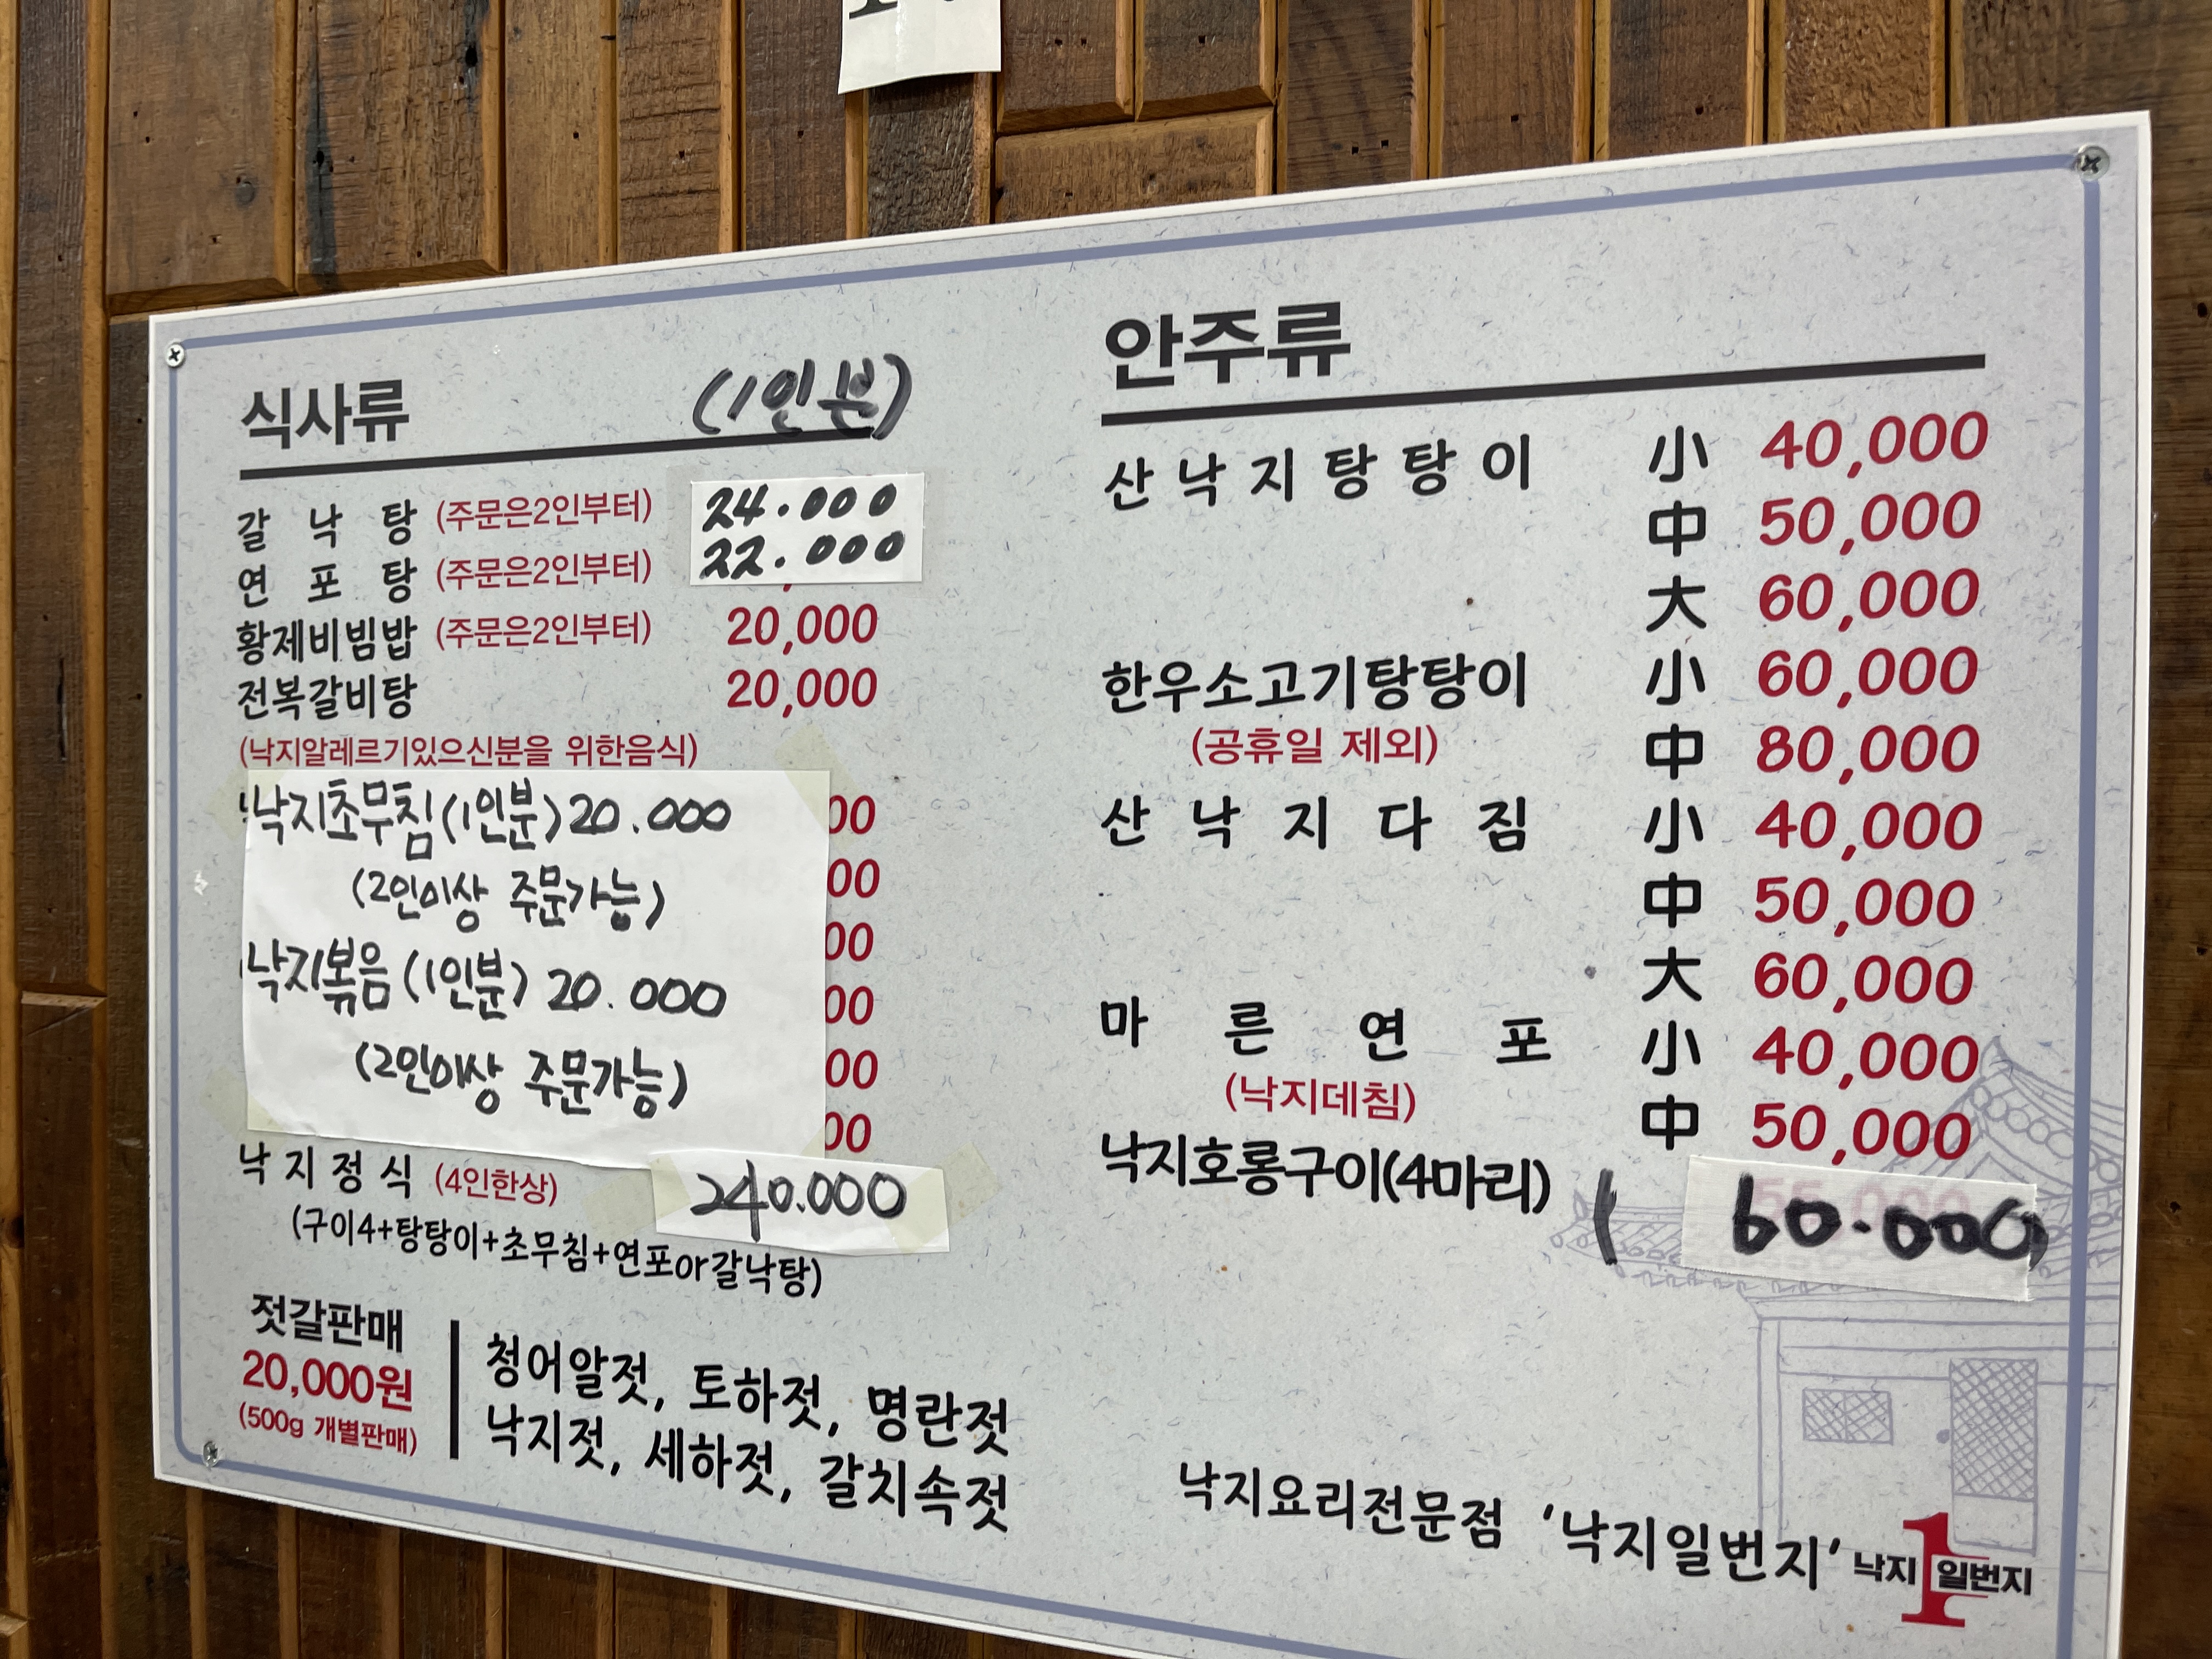 식사류 (1인분)
갈낙탕 (주문은2인부터) 24.000
연포탕 (주문은2인부터) 22.000
황제비빔밥 (주문은2인부터) 20,000
전복갈비탕 20,000
(낙지알레르기있으신분을 위한음식)
낙지초무침(1인분)20.000
(2인이상 주문가능)
낙지볶음(1인분)20.000
(2인이상 주문가능)
00
00
00
00
00
00
낙지정식 (4인한상) 240.000
(구이4+탕탕이+초무침+연포or갈낙탕)
젓갈판매
20,000원
(500g 개별판매)
청어알젓, 토하젓, 명란젓
낙지젓, 세하젓, 갈치속젓
안주류
산낙지탕탕이 小 40,000
中 50,000
大 60,000
한우소고기탕탕이 小 60,000
(공휴일 제외) 中 80,000
산낙지다짐 小 40,000
中 50,000
大 60,000
마른연포 小 40,000
(낙지데침) 中 50,000
낙지호롱구이(4마리) (60.000)
낙지요리전문점 '낙지일번지' 낙지1일번지